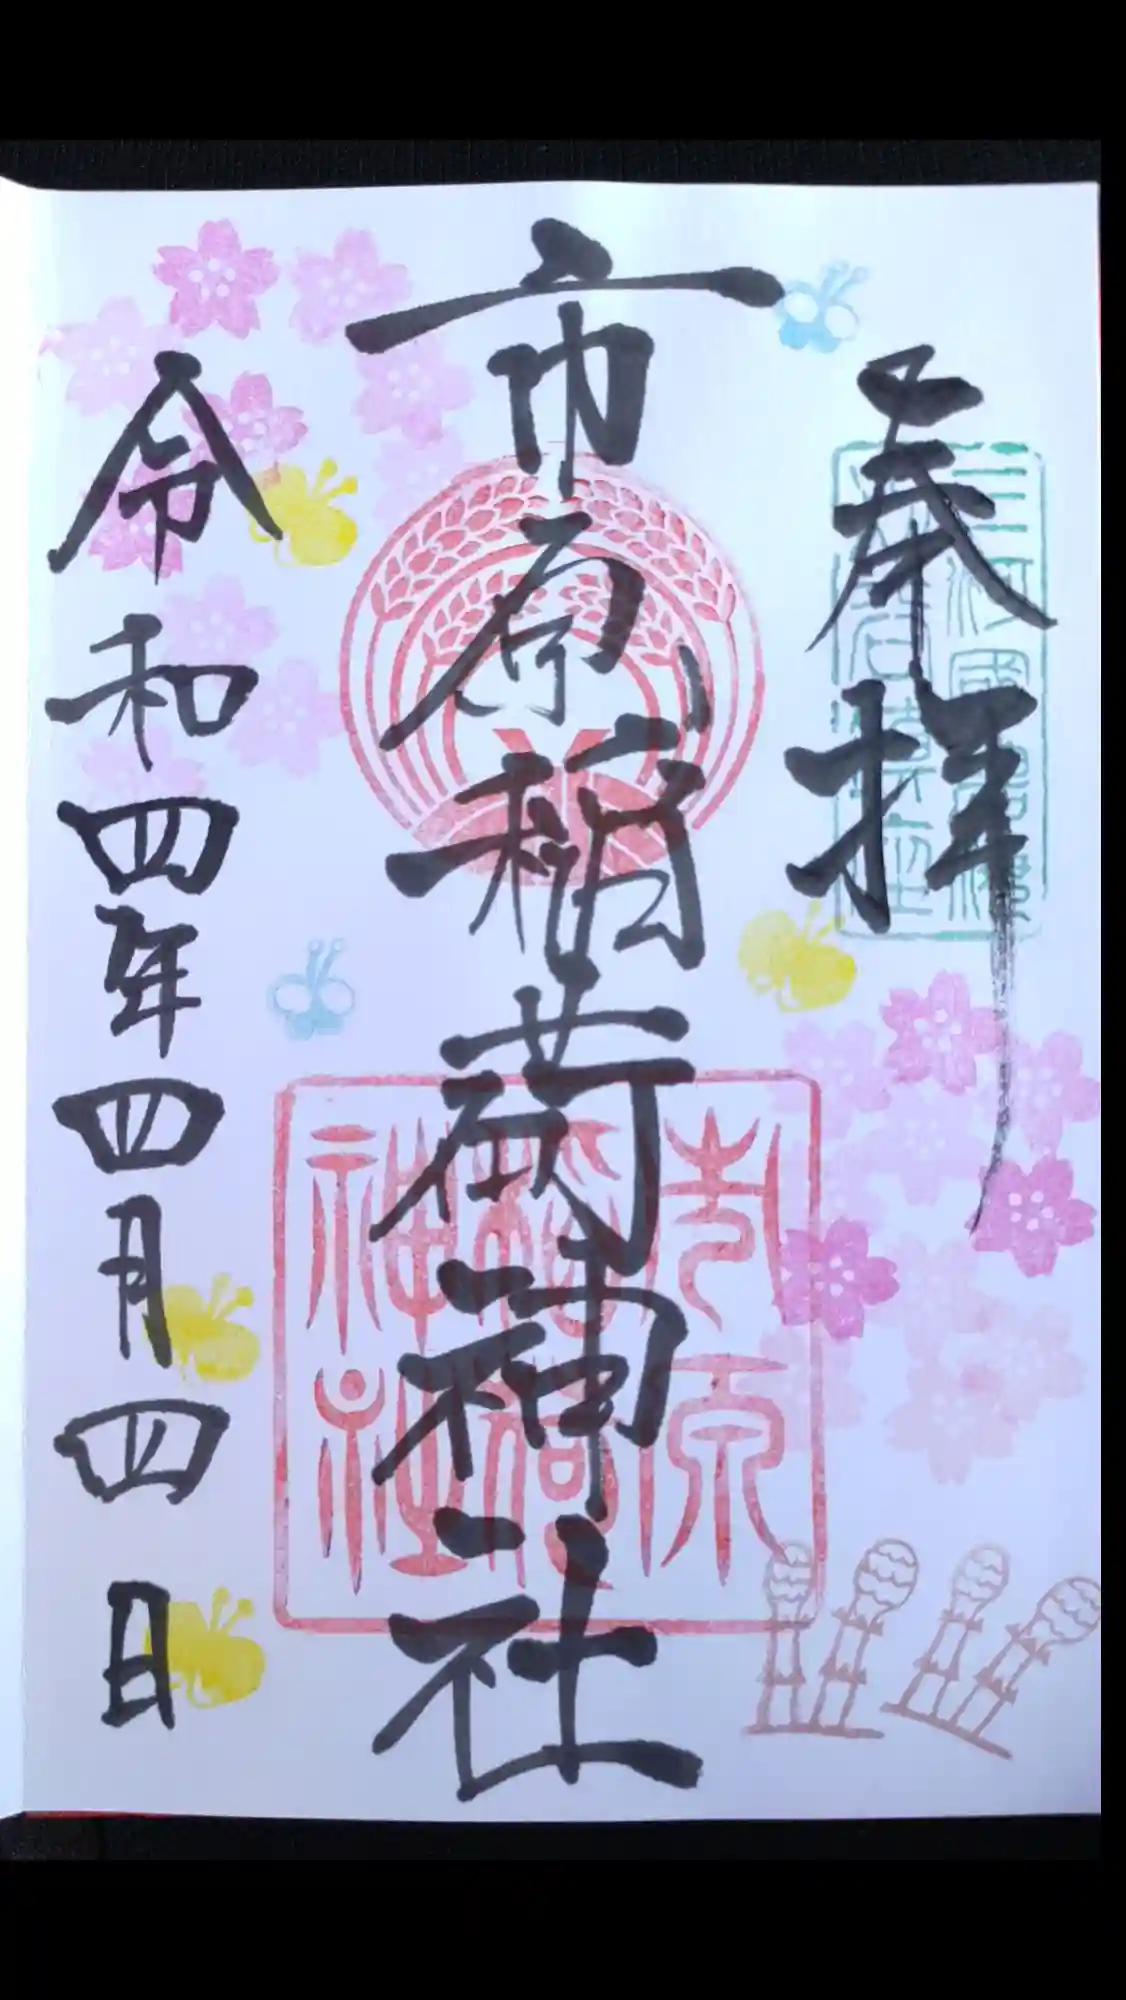 奉拝
市原稲荷神社
令和四年四月四日
市原
稲荷
神社